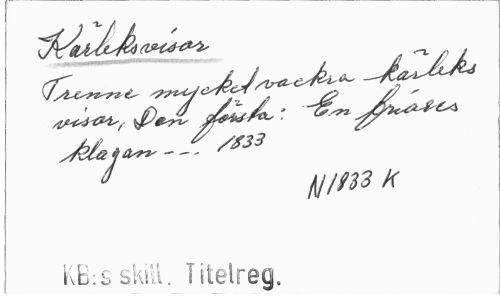 Kärleksvisor
Trenne mycket vackra kärleks
visor, Den första: En friares
klagan --- 1833
N 1833 K
KB:s skill. Titelreg.